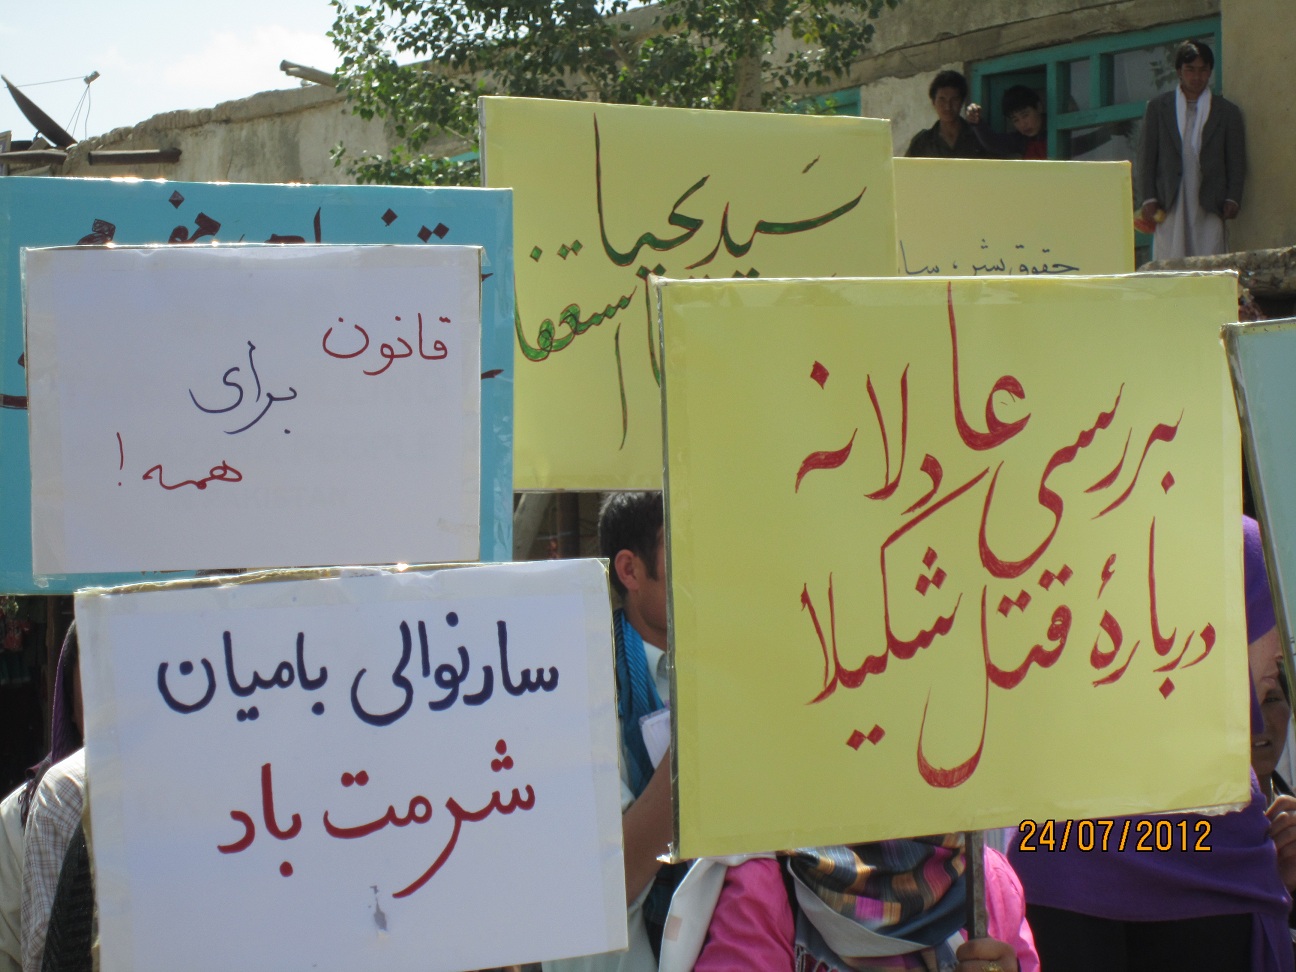 سید یحیا
استعفا
حقوق بشر،
قانون
برای
همه!
بررسی عادلانه
دربارهٔ قتل شکیلا
سارنوالی بامیان
شرمت باد
24/07/2012